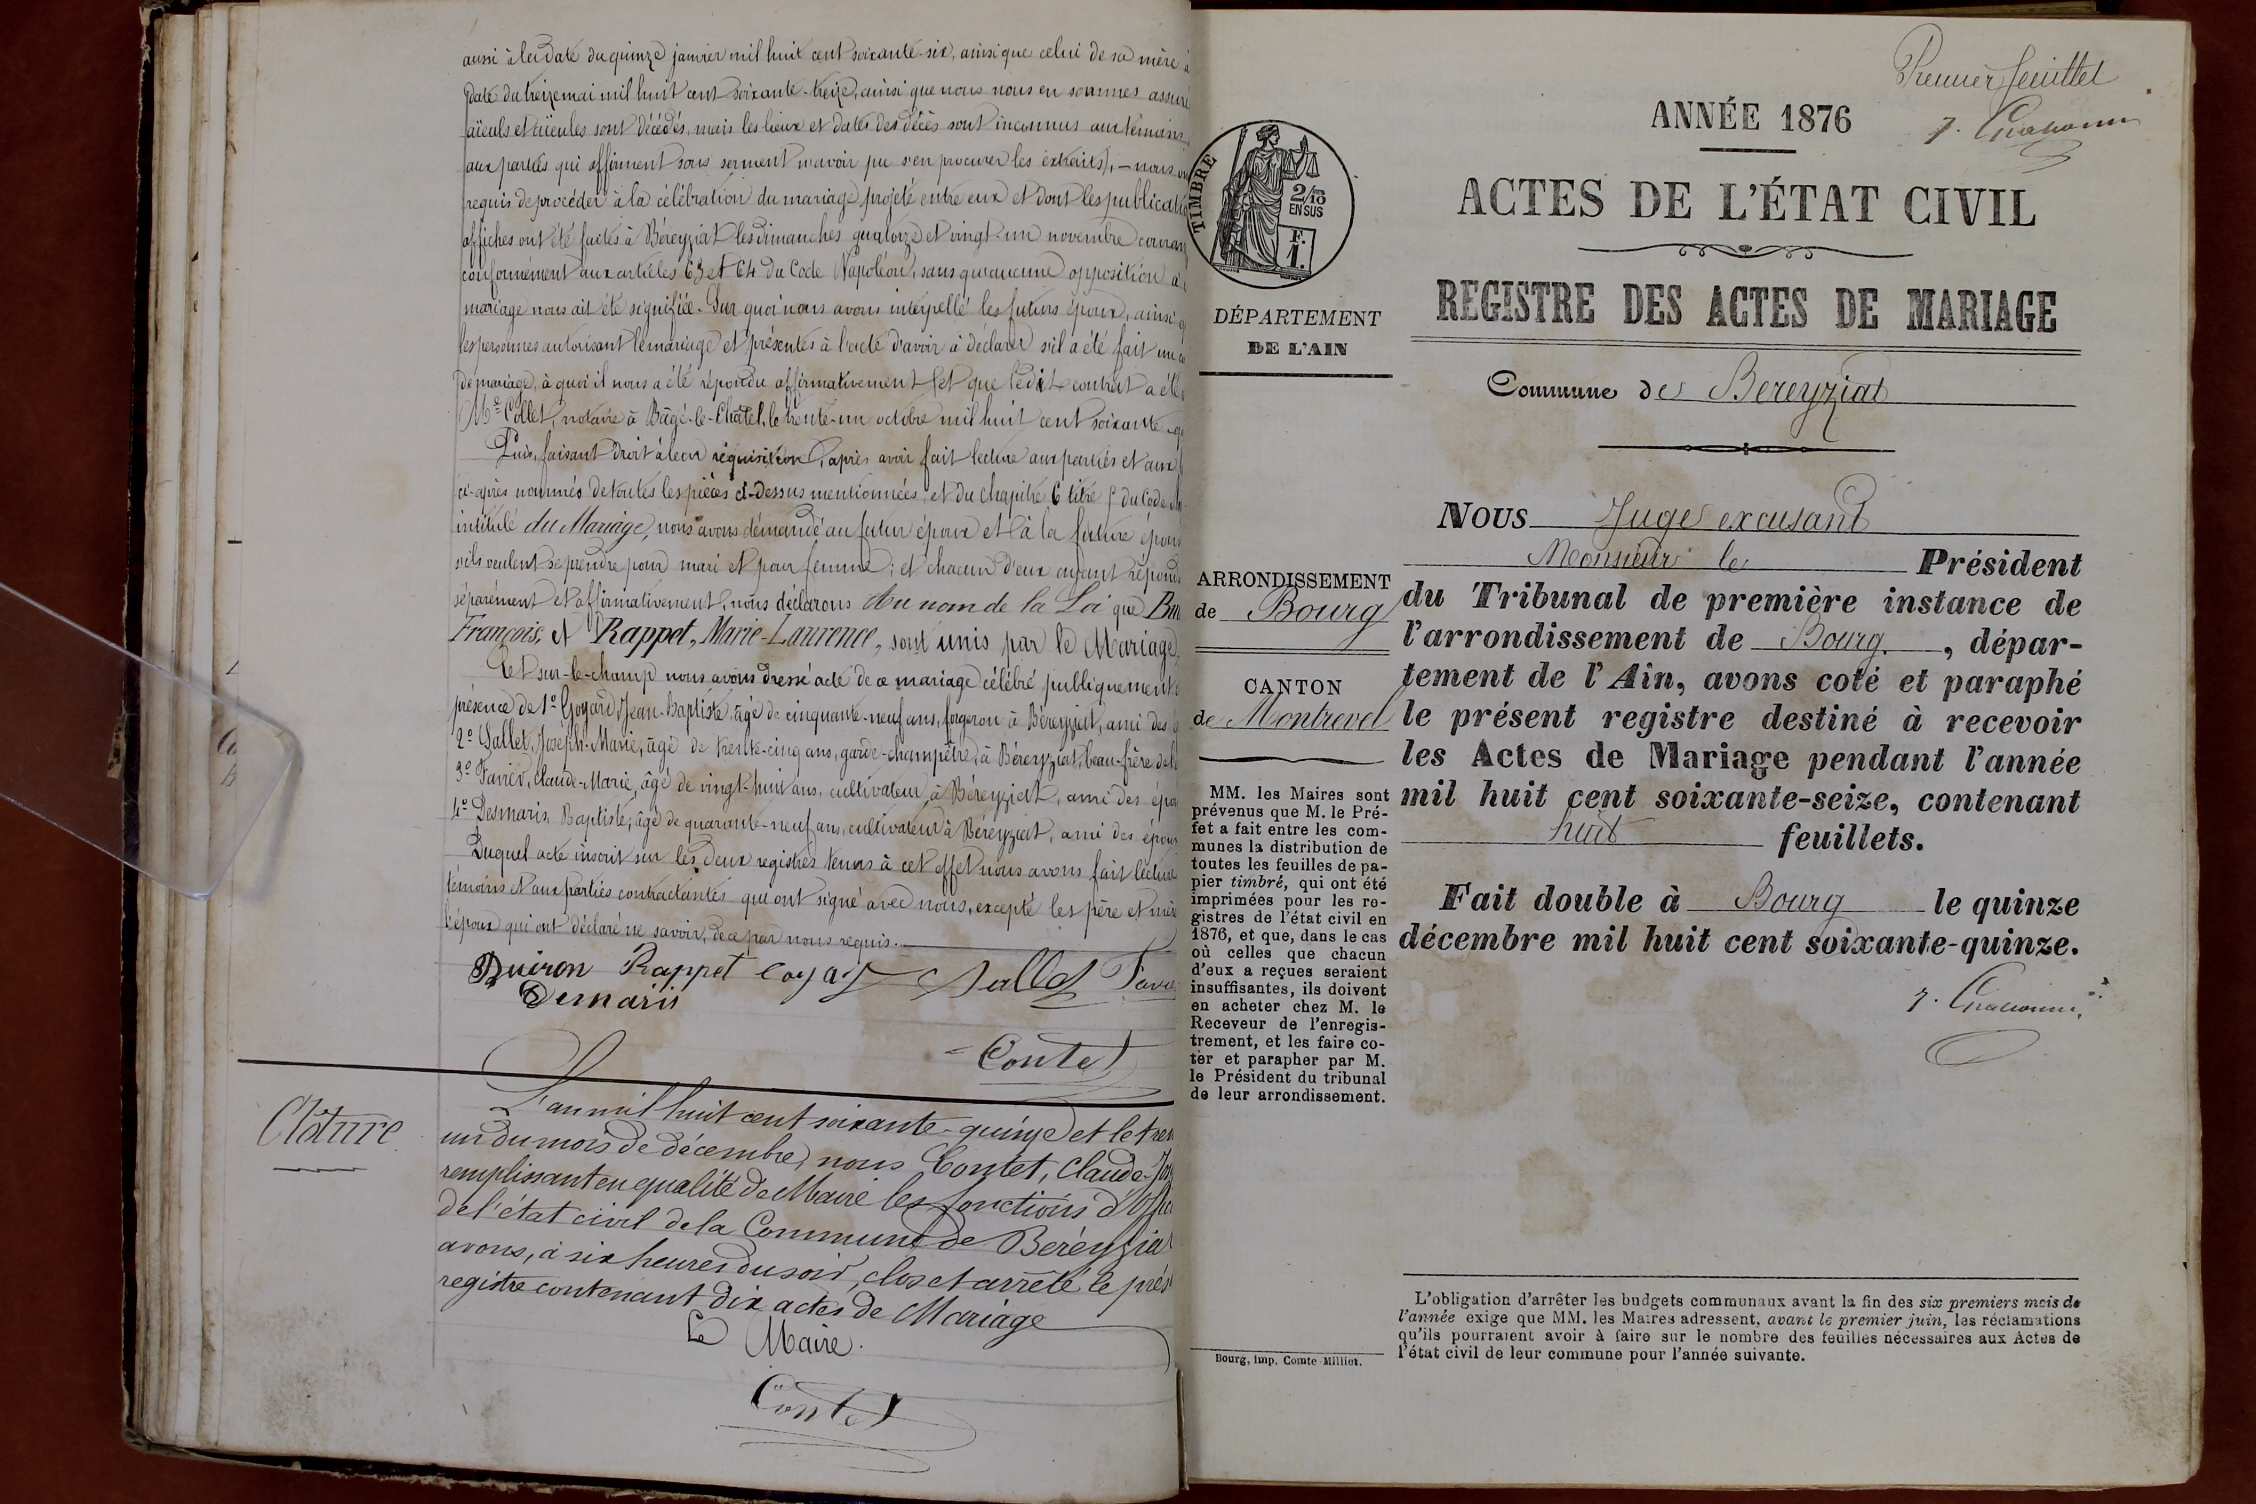 aussi à la date du quinze janvier mil huit cent soixante-six, ainsi que celui de sa mère à
date du treize mai mil huit cent soixante-treize, ainsi que nous nous en sommes assuré
aïeuls et aïeules sont décédés, mais les lieux et dates des décès sont inconnus aux témoins
aux parties qui affirment sous serment n'avoir pu s'en procurer les extraits), — nous on
requis de procéder à la célébration du mariage projeté entre eux et dont les publicati
affiches ont été faites à Béreyziat les dimanches quatorze et vingt-un novembre couran
conformément aux articles 63 et 64 du Code Napoléon, sans qu'aucune opposition a
mariage nous ait été signifiée. Sur quoi nous avons interpellé les futurs époux, ainsi q
les personnes autorisant le mariage et présentes à l'acte d'avoir à déclarer s'il a été fait un co
de mariage, à quoi il nous a été répondu affirmativement et que ledit contrat a été
Me Collet, notaire à Bâgé-le-Châtel, le trente-un octobre mil huit cent soixante-q
Puis, faisant droit à leur réquisition, après avoir fait lecture aux parties et aux
ci-après nommés de toutes les pièces ci-dessus mentionnées, et du chapitre 6 titre 5 du Code
intitulé du Mariage, nous avons demandé au futur époux et à la future épou
s'ils veulent se prendre pour mari et pour femme; et chacun d'eux ayant répond
séparément et affirmativement, nous déclarons Au nom de la Loi que Bu
François, et Rappet, Marie-Laurence, sont unis par le Mariage,
Et sur-le-champ nous avons dressé acte de ce mariage célébré publiquement
présence de 1º Goyard, Jean-Baptiste, âgé de cinquante-neuf ans, forgeron à Béreyziat, ami des
2º Sallet, Joseph-Marie, âgé de trente-cinq ans, garde-champêtre, à Béreyziat, beau-frère de l
3º Favier, Claude-Marie, âgé de vingt-huit ans, cultivateur, à Béreyziat, ami des épo
4º Desmaris, Baptiste, âgé de quarante-neuf ans, cultivateur à Béreyziat, ami des époux
Duquel acte inscrit sur les deux registres tenus à cet effet nous avons fait lecture
témoins et aux parties contractantes qui ont signé avec nous, excepté les père et mère
l'époux qui ont déclaré ne savoir, de ce par nous requis.
Buiron Rappet Goyard Sallet Favi
Demaris
Contet
Clôture
L'an mil huit cent soixante-quinze et le tren
un du mois de décembre, nous Contet, Claude-Jos
remplissant en qualité de Maire les fonctions d'Offic
de l'état civil de la Commune de Béréyziat
avons, à six heures du soir, clos et arrêté le prés
registre contenant dix actes de Mariage
Le Maire.
Contet
Premier feuillet
ANNÉE 1876
TIMBRE
2/10
EN SUS
F.
1.
ACTES DE L'ÉTAT CIVIL
REGISTRE DES ACTES DE MARIAGE
DÉPARTEMENT
DE L'AIN
Commune de Bereyziat
ARRONDISSEMENT
de Bourg
CANTON
de Montrevel
MM. les Maires sont
prévenus que M. le Pré-
fet a fait entre les com-
munes la distribution de
toutes les feuilles de pa-
pier timbré, qui ont été
imprimées pour les re-
gistres de l'état civil en
1876, et que, dans le cas
où celles que chacun
d'eux a reçues seraient
insuffisantes, ils doivent
en acheter chez M. le
Receveur de l'enregis-
trement, et les faire co-
ter et parapher par M.
le Président du tribunal
de leur arrondissement.
Bourg, imp. Comte-Milliet.
NOUS Juge excusant
Monsieur le Président
du Tribunal de première instance de
l'arrondissement de Bourg, dépar-
tement de l'Ain, avons coté et paraphé
le présent registre destiné à recevoir
les Actes de Mariage pendant l'année
mil huit cent soixante-seize, contenant
huit feuillets.
Fait double à Bourg le quinze
décembre mil huit cent soixante-quinze.
L'obligation d'arrêter les budgets communaux avant la fin des six premiers mois de
l'année exige que MM. les Maires adressent, avant le premier juin, les réclamations
qu'ils pourraient avoir à faire sur le nombre des feuilles nécessaires aux Actes de
l'état civil de leur commune pour l'année suivante.